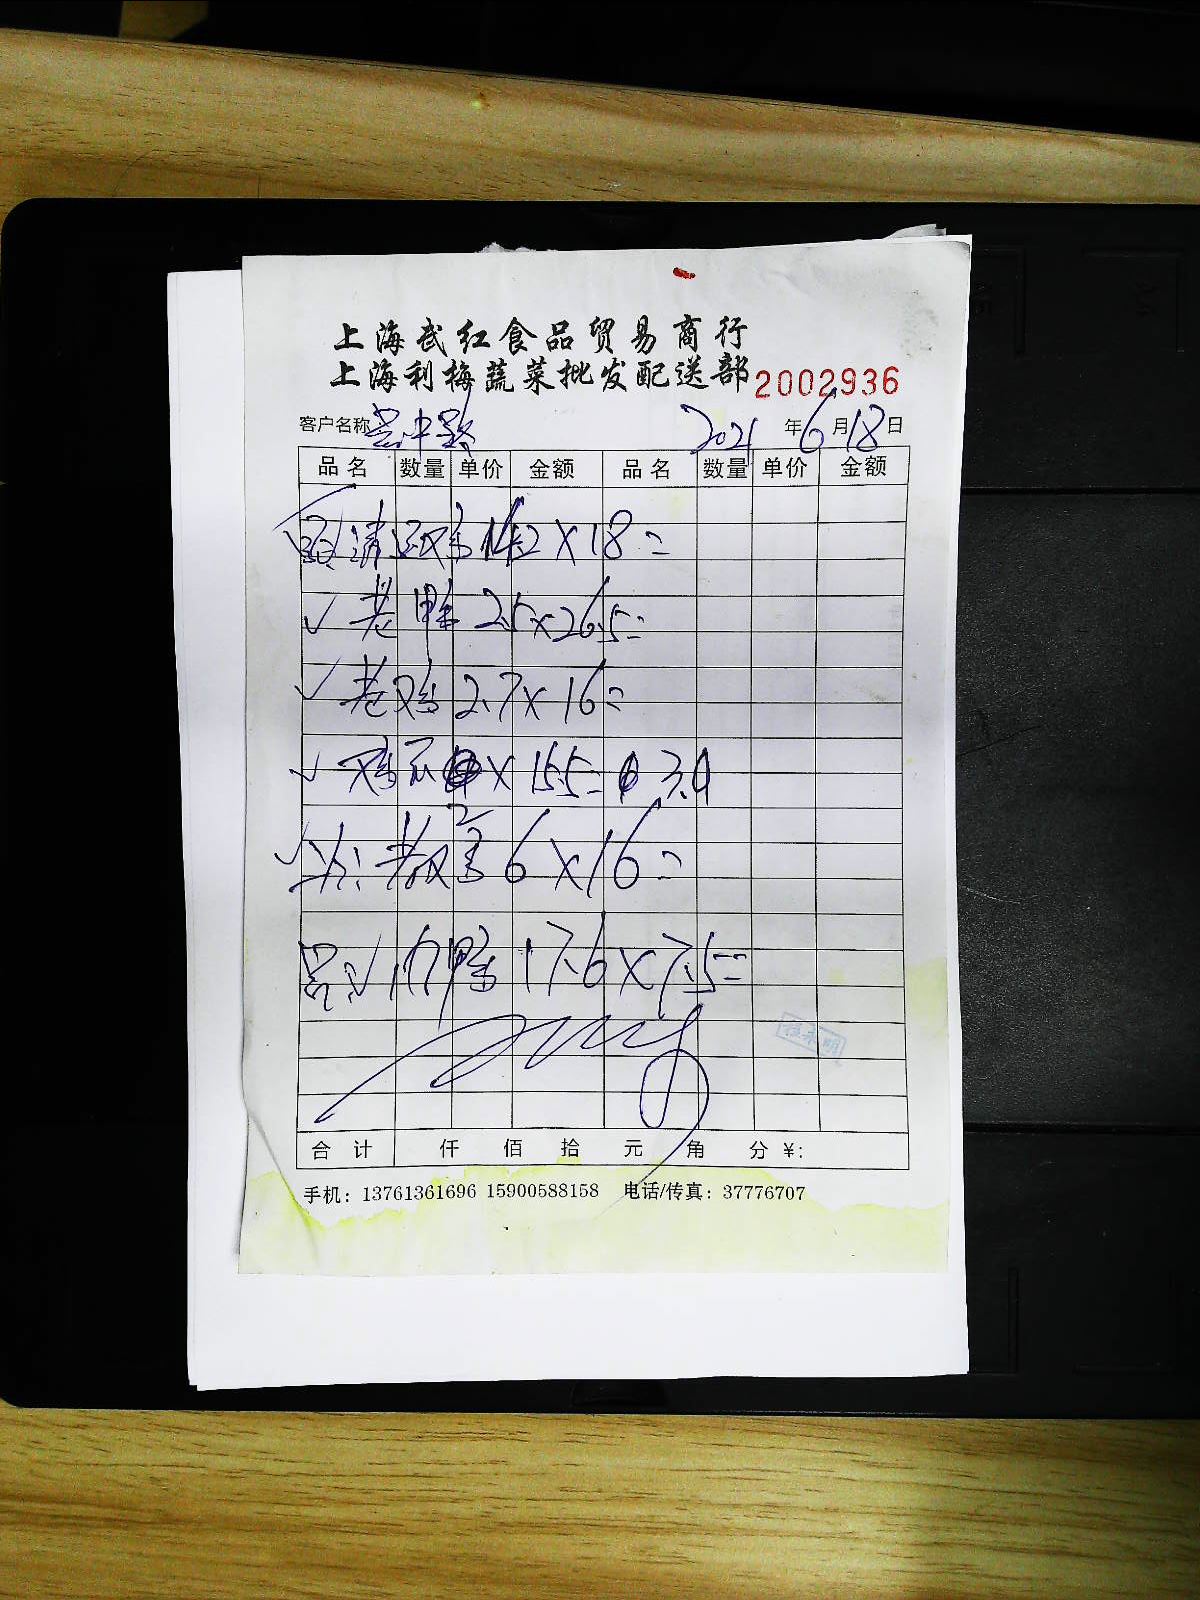 上海武红食品贸易商行
上海利梅蔬菜批发配送部 2002936
客户名称 2021 年 6 月 18 日
品名 数量 单价 金额 品名 数量 单价 金额
清 鸡 14.2×18=
✓ 老鸭 2.5×26.5=
✓ 老鸡 2.7×16=
✓ 鸡 ×15.5= 3.9
✓ 老鸡 6×16=
✓ 鸭 17.6×7.5=
合计 仟 佰 拾 元 角 分 ¥:
手机: 13761361696 15900588158 电话/传真: 37776707